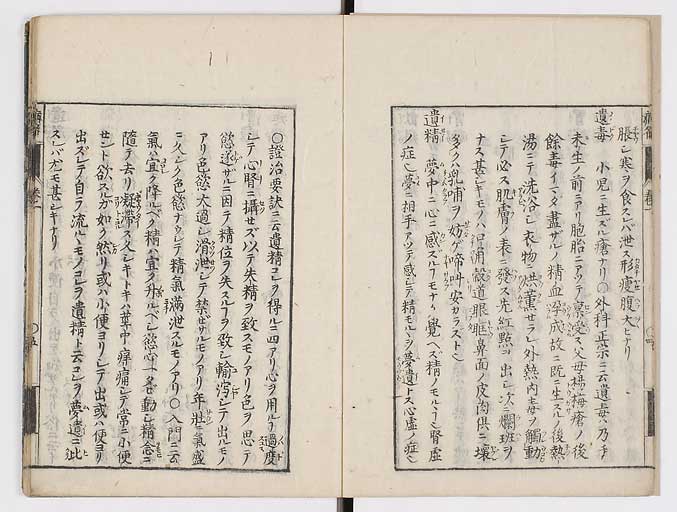 脹シ寒ヲ食スレバ泄ス形痩腹大ヒナリ
遺毒 小児ニ生ズル瘡ナリ○外科正宗ニ云遺毒ハ乃チ
未生ノ前ニアリ胞胎ニアツテ禀受ス父母楊梅瘡ノ後
餘毒イマダ盡ザルノ精血孕成故ニ既ニ生スルノ後熱
湯ニテ洗浴シ衣物ヲ烘薫セラレ外熱内毒ヲ觸動
シテ必ス肌膚ノ表ニ發ス先紅點ヲ出シ次ニ爛斑ヲ
ナス甚シキモノハ口角穀道眼眶鼻面ノ皮肉倶ニ壊
多クハ乳哺ヲ妨ゲ啼叫安カラスト
遺精 夢中ニ心ニ感スルヿモナク覺ヘズ精ノモルヽヿ腎虚
ノ症也夢ニ相手アツテ感シテ精モルヽヲ夢遺トス心虚ノ症也
○證治要訣ニ云遺精コレヲ得ルニ四アリ心ヲ用ルヿ過度
シテ心腎ニ攝セズ以テ失精ヲ致スモノアリ色ヲ思テ
慾遂ザルニ因テ精位ヲ失スルヲ致シ輸瀉シテ出ルモノ
アリ色慾太過シ滑泄シテ禁ゼザルモノアリ年壯ニ氣盛
ニ久シク色慾ナクシテ精氣滿泄スルモノアリ○入門ニ云
氣ハ宜ク降ルベク精ハ宜ク升ルベシ慾心一タビ動ケバ精念ニ
隨テ去リ凝滯ス久シキトキハ莖中痒痛シテ常ニ小便
セント欲スルガ如ク然リ或ハ小便ヨリシテ出或ハ便ヨリ
出ズシテ自ラ流ルヽモノコレヲ遺精ト云コレヲ夢遺ニ比
スレバ尤モ甚シキナリ
卷一
○五